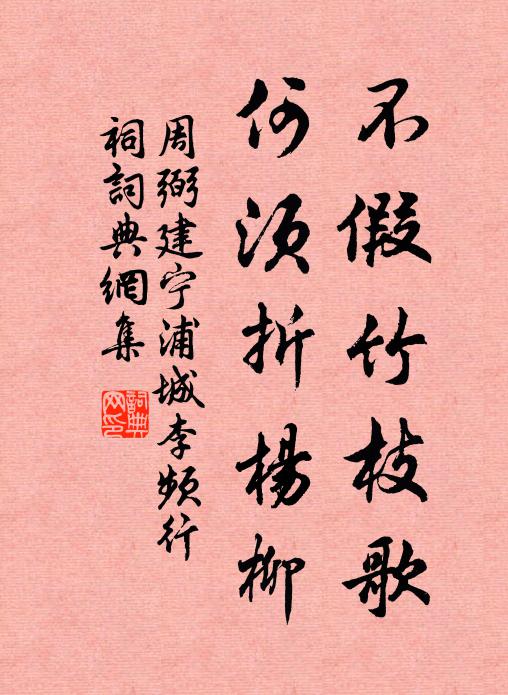 不假竹枝歌
何须折楊柳
周弼建宁浦城李频行
祠詞典網集
詞典网印